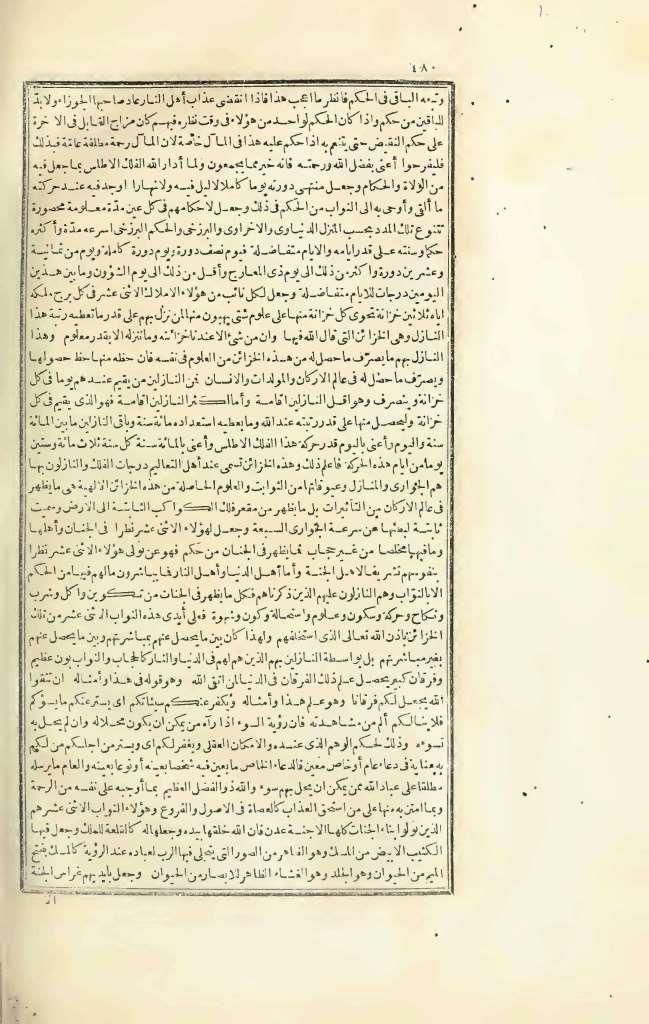 ٤٨٠
وتبعه الباقى فى الحكم فانظر ما اعجب هذا فاذا انقضى عذاب أهل النار عاد صاحبها الجوزاء ولا بدّ
للباقين من حكم واذا كان الحكم لواحد من هؤلاء فى وقت نظره فيهم كان مزاج القابل فى الآخرة
على حكم النقيض حتى يتنعم به اذا حكم عليه هذا فى المآل خاصة لان المآل رحمة مطلقة عامّة فبذلك
فليفرحوا أعنى بفضل الله ورحمته فانه خير مما يجمعون ولما أدار الله الفلك الاطلس بما جعل فيه
من الولاة والحكام وجعل منتهى دورته يوما كاملا لا ليل فيه ولا نهارا اوجد فيه عند حركته
ما ألقى وأوحى به الى النواب من الحكم فى ذلك وجعل لاحكامهم فى كل عين مدّة معلومة محصورة
تتنوع تلك المدد بحسب المنزل الدنياوى والاخراوى والبرزخى والحكم البرزخى اسرعه مدّة وأكثره
حكما وسنته على قدر ايامه والايام متفاضلة فيوم نصف دورة ويوم دورة كاملة ويوم من ثمانية
وعشرين دورة واكثر من ذلك الى يوم ذى المعارج وأقل من ذلك الى يوم الشؤون وما بين هذين
اليومين درجات للايام متفاضلة وجعل لكل نائب من هؤلاء الاملاك الاثنى عشر فى كل برج ملكه
اياه ثلاثين خزانة تحوى كل خزانة منها على علوم شتى يهبون منها لمن نزل بهم على قدر ما تعطيه رتبة هذا
النازل وهى الخزائن التى قال الله فيها وان من شئ الا عندنا خزائنه وما ننزله الا بقدر معلوم وهذا
النازل بهم ما يصرّف ما حصل له من هذه الخزائن من العلوم فى نفسه فان حظه منها حظ حصولها
ويصرّف ما حصل له فى عالم الاركان والمولدات والانسان فمن النازلين من يقيم عندهم يوما فى كل
خزانة وينصرف وهو اقل النازلين اقامة وأما اكثر النازلين اقامة فهو الذى يقيم فى كل
خزانة وليحصل منها على قدر رتبته عند الله وما يعطيه استعداده مائة سنة وباقى النازلين ما بين المائة
سنة واليوم وأعنى باليوم قدر حركة هذا الفلك الاطلس وأعنى بالمائة سنة كل سنة ثلاث مائة وستين
يوما من ايام هذه الحركة فاعلم ذلك وهذه الخزائن تسمى عند أهل التعاليم درجات الفلك والنازلون بها
هم الجوارى والمنازل وعيوقاتها من الثوابت والعلوم الحاصلة من هذه الخزائن الالهية هى ما يظهر
فى عالم الاركان من التأثيرات بل ما يظهر من مقعر فلك الكواكب الثابتة الى الارض وسميت
ثابتة لبطئها عن سرعة الجوارى السبعة وجعل لهؤلاء الاثنى عشر نظرا فى الجنان وأهلها
وما فيها مخلصا من غير حجاب فما يظهر فى الجنان من حكم فهو عن تولى هؤلاء الاثنى عشر نظرا
بنفوسهم تشريفا لاهل الجنة وأما أهل الدنيا وأهل النار فما يباشرون ما لهم فيها من الحكم
الا بالنواب وهم النازلون عليهم الذين ذكرناهم فكل ما يظهر فى الجنات من تكوين واكل وشرب
ونكاح وحركة وسكون وعلوم واستحالة وكون وشهوة فعلى أيدى هذه النواب الاثنى عشر من تلك
الخزائن باذن الله تعالى الذى استخلفهم ولهذا كان بين ما يحصل عنهم بمباشرتهم وبين ما يحصل عنهم
بغير مباشرتهم بل بواسطة النازلين بهم الذين هم لهم فى الدنيا والنار كالحجاب والنواب بون عظيم
وفرقان كبير يحصل علم ذلك الفرقان فى الدنيا لمن اتقى الله وهو قوله فى هذا وأمثاله ان تتقوا
الله يجعل لكم فرقانا وهو علم هذا وأمثاله ويكفر عنكم سيئاتكم اى يستر عنكم ما يسوءكم
فلا ينالكم ألم من مشاهدته فان رؤية السوء اذا رآه من يمكن ان يكون محلا له وان لم يحل به
تسوءه وذلك لحكم الوهم الذى عنده والامكان العقلى ويغفر لكم اى ويستر من اجلكم من لكم
به عناية فى دعاء عام أو خاص معين فالدعاء الخاص ما يعين فيه شخصا بعينه أو نوعا بعينه والعام ما يرسله
مطلقا على عباد الله ممن يمكن ان يحل بهم سوء والله ذو الفضل العظيم بما أوجبه على نفسه من الرحمة
وبما امتن به منها على من استحق العذاب كالعصاة فى الاصول والفروع وهؤلاء النواب الاثنى عشر هم
الذين تولوا بناء الجنات كلها الا جنة عدن فان الله خلقها بيده وجعلها له كالقلعة للملك وجعل فيها
الكثيب الابيض من المسك وهو الظاهر من الصور التى يتجلى فيها الرب لعباده عند الرؤية كالمسك بفتح
الميم من الحيوان وهو الجلد وهو الغشاء الظاهر للابصار من الحيوان وجعل بايديهم غراس الجنة